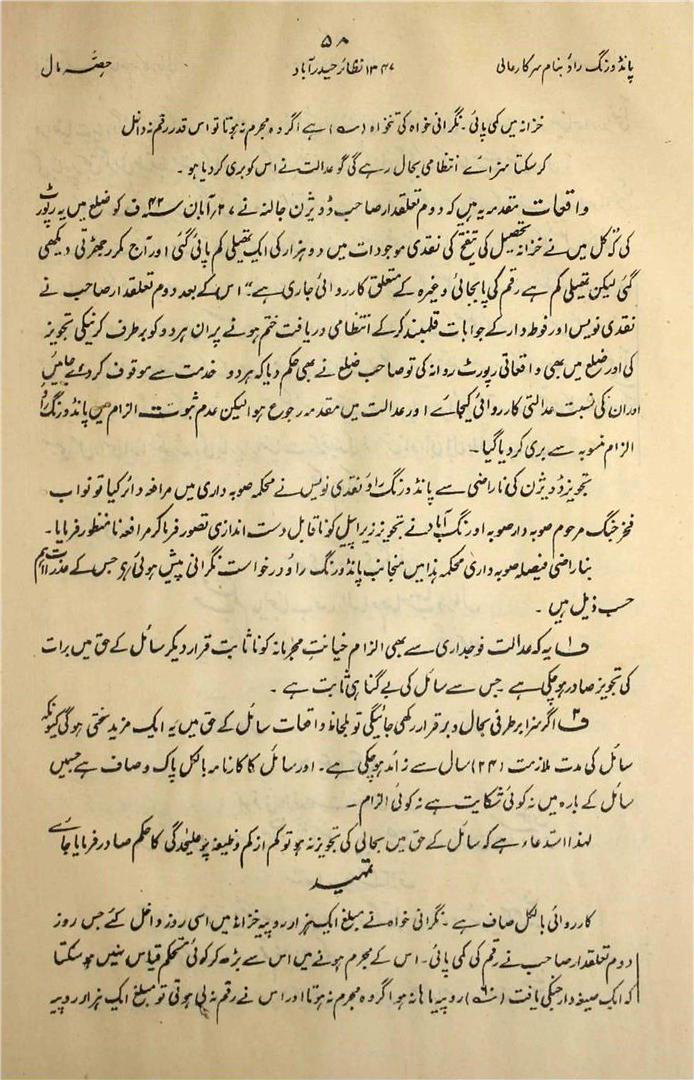 ۵۸
پانڈورنگ راؤ بنام سرکارعالی
۱۳۴۷ نظائر حیدرآباد
حصّہ مال
خزانہ میں کمی پائی۔ نگرانی خواہ کی تنخواہ () ہے اگر وہ مجرم نہ ہوتا تو اس قدر رقم نہ داخل
کر سکتا سزائے انتظامی بحال رہے گی گو عدالت نے اس کو بری کردیا ہو۔
واقعات مقدمہ یہ ہیں کہ دوم تعلقدار صاحب ڈویژن جالنہ نے ۲۷؍آبان ۴۲ف کو ضلع میں یہ رپورٹ
کی کہ کل میں نے خزانہ تحصیل کی تنقیح کی نقدی موجودات میں دو ہزار کی ایک تھیلی کم پائی گئی اور آج مکرر جھڑتی دیکھی
گئی لیکن تھیلی کم ہے رقم کی پابجائی وغیرہ کے متعلق کارروائی جاری ہے" اس کے بعد دوم تعلقدار صاحب نے
نقدی نویس اور فوطہ دار کے جوابات قلمبند کرکے انتظامی دریافت ختم ہونے پر ان ہردو کو برطرف کرنیکی تجویز
کی اور ضلع میں بھی واقعاتی رپورٹ روانہ کی تو صاحب ضلع نے بھی حکم دیا کہ ہردو خدمت سے موقوف کردئے جائیں
اور ان کی نسبت عدالتی کارروائی کیجائے اور عدالت میں مقدمہ رجوع ہوا لیکن عدم ثبوت الزام میں پانڈورنگ راؤ
الزام منسوبہ سے بری کردیا گیا۔
تجویز ڈویژن کی ناراضی سے پانڈورنگ راؤ نقدی نویس نے محکمہ صوبہ داری میں مرافعہ دائر کیا تو نواب
فخر جنگ مرحوم صوبہ دار صوبہ اورنگ آباد نے تجویز زیر اپیل کو ناقابل دست اندازی تصور فرماکر مرافعہ نامنظور فرمایا۔
بناراضی فیصلہ صوبہ داری محکمہ ہذا میں منجانب پانڈورنگ راؤ درخواست نگرانی پیش ہوئی ہے جس کے عذرات اہم
حسب ذیل ہیں۔
ف۱ یہ کہ عدالت فوجداری سے بھی الزام خیانت مجرمانہ کو ناثابت قرار دیکر سائل کے حق میں برات
کی تجویز صادر ہوچکی ہے جس سے سائل کی بے گناہی ثابت ہے۔
ف۲ اگر سزا برطرفی بحال و برقرار رکھی جائیگی تو بلحاظ واقعات سائل کے حق میں یہ ایک مزید سختی ہوگی کیونکہ
سائل کی مدت ملازمت (۲۴) سال سے زائد ہوچکی ہے۔ اور سائل کا کارنامہ بالکل پاک و صاف ہے جسمیں
سائل کے بارہ میں نہ کوئی شکایت ہے نہ کوئی الزام۔
لہذا استدعاء ہے کہ سائل کے حق میں بحالی کی تجویز نہ ہو تو کم از کم وظیفہ پر علیحدگی کا حکم صادر فرمایا جائے
تمہید
کارروائی بالکل صاف ہے۔ نگرانی خواہ نے مبلغ ایک ہزار روپیہ خزانہ میں اسی روز داخل کئے جس روز
دوم تعلقدار صاحب نے رقم کی کمی پائی۔ اس کے مجرم ہونے میں اس سے بڑھ کر کوئی مستحکم قیاس نہیں ہوسکتا
کہ ایک صیغہ دار جسکی یافت () روپیہ ماہانہ ہو اگر وہ مجرم نہ ہوتا اور اس نے رقم نہ لی ہوتی تو مبلغ ایک ہزار روپیہ